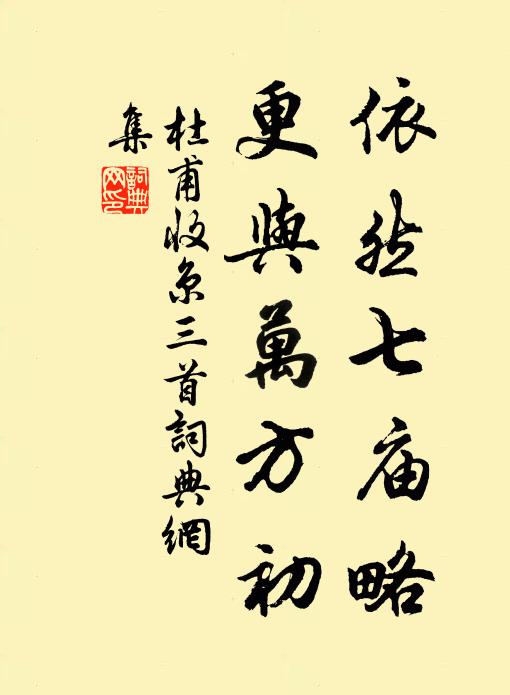 依然七庙略
更與萬方初
杜甫收京三首詞典網
集
詞典
网印